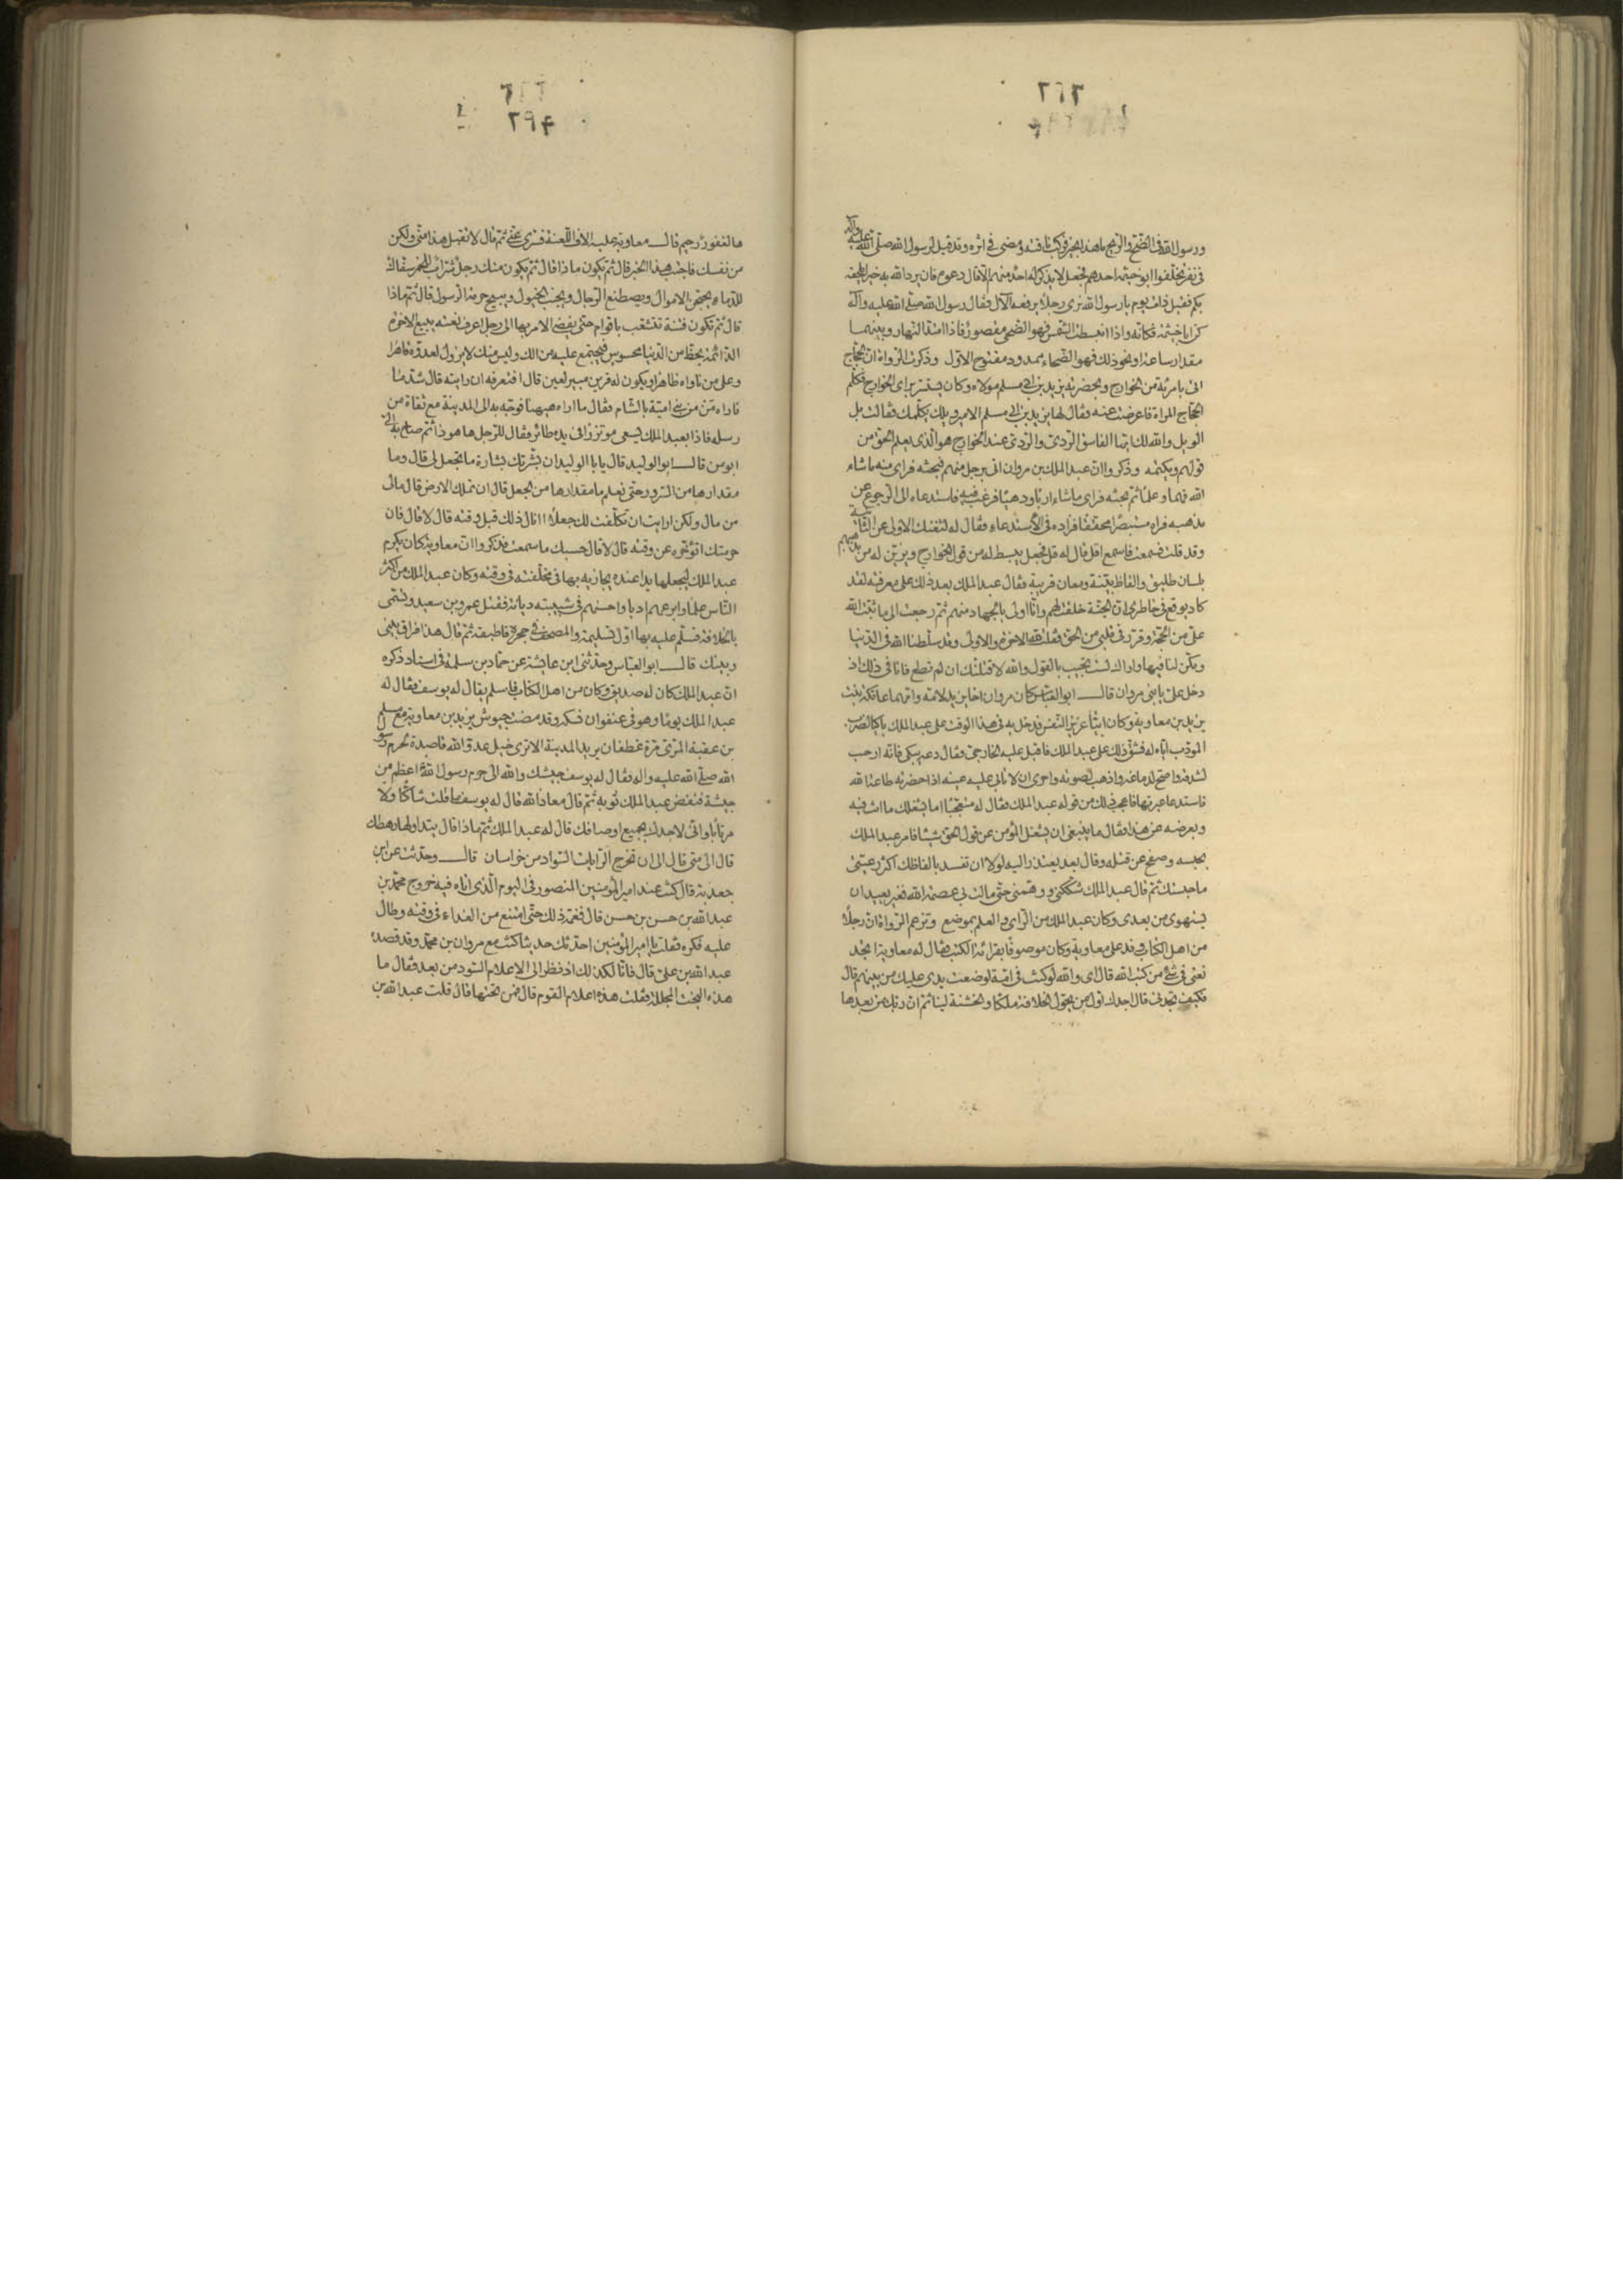 ٢٦٢
ورسول الله في الضح والريح ما هذا بخير فركب ناقته ومضى في اثره وقد قيل لرسول الله صلى الله عليه وآله
في نفر تخلفوا ابو خيثمة احدهم فجعل لا يذكر له احد منهم الا قال دعوه فان يرد الله به خيرا يلحقه
بكم فقيل ذات يوم يا رسول الله نرى رجلا يرفعه الآل فقال رسول الله صلى الله عليه وآله
كن ابا خيثمة فكانه واذا انبسطت الشمس فهو الضحى مقصور فاذا امتد النهار وبينهما
مقدار ساعة او نحو ذلك فهو الضحاء ممدود مفتوح الاول وذكرت الرواة ان الحجاج
اتى بامرءة من الخوارج وبحضرته يزيد بن ابي مسلم مولاه وكان يستتر براى الخوارج فكلم
الحجاج المراة فاعرضت عنه فقال لها يزيد بن ابي مسلم الامير ويلك يكلمك فقالت بل
الويل والله لك ايها الفاسق الردي والردي عند الخوارج هو الذي يعلم الحق من
قولهم ويكتمه وذكروا ان عبد الملك بن مروان اتى برجل منهم فبحثه فراى منه ما شاء
الله فهما وعلما ثم بحثه فراى ما شاء اربا ودهيا فرغب فيه فاستدعاه الى الرجوع عن
مذهبه فراه مستبصرا محققا فزاده في الاستدعاء فقال له لتغنك الاولى عن الثانية
وقد قلت فسمعت فاسمع اقل قال له قل فجعل يبسط له من قول الخوارج ويزين له من مذهبهم
بلسان طليق والفاظ بينة ومعان قريبة فقال عبد الملك بعد ذلك على معرفته لقد
كاد يوقع في خاطري ان الجنة خلقت لهم وانا اولى بالجهاد منهم ثم رجعت الى ما ثبت الله
على من الحجة وقرر في قلبي من الحق فقلت لله الاخرة والاولى وقد سلطنا الله في الدنيا
ومكن لنا فيها واراك لست تجيب بالقول والله لاقتلنك ان لم تطع فانا في ذلك اذ
دخل على بابني مروان قال ابو العباس كان مروان اخا يزيد لامه وامهما عاتكة بنت
يزيد بن معاوية وكان ابيا عزيز النفس فدخل به في هذا الوقت على عبد الملك باكيا لضرب
المؤدب اياه له فشق ذلك على عبد الملك فاقبل عليه الخارجي وقال دعه يبكي فانه ارحب
لشدقه واصح لدماغه واذهب لصوته واحرى ان لا تابى عليه عينه اذا حضرته طاعة الله
فاستدعا عبرتها فاعجب ذلك من قوله عبد الملك فقال له متعجبا اما يشغلك ما انت فيه
وبعرضه عن هذا فقال ما ينبغي ان يشغل المؤمن عن قول الحق شيئا فامر عبد الملك
بحبسه وصفح عن قتله وقال بعد يعتذر اليه لولا ان تفسد بالفاظك اكثر رعيتي
ما حبستك ثم قال عبد الملك من شككني ووهمني حتى مالت بي عصمة الله فغير بعيد ان
يستهوي من بعدي وكان عبد الملك من الراى والعلم بموضع وتزعم الرواة ان رجلا
من اهل الكتاب وفد على معاوية وكان موصوفا بقراءة الكتب فقال له معاوية اتجد
نعتي في شئ من كتب الله قال اى والله لو كنت في امة لوضعت يدى عليك من بينهم قال
فكيف تجدني قال اجدك اول من يحول الخلافة ملكا والخشنة لينا ثم ان ربك من بعدها
٢٩٣
ها لغفور رحيم قال معاوية عليه الاف اللعنة فسرى عني ثم قال لا تقبل هذا مني ولكن
من نفسك فاختبر هذا الخبر قال ثم يكون ماذا قال ثم يكون منك رجل شراب للخمر سفاك
للدماء يحتجن الاموال ويصطنع الرجال ويجنب الخيول ويبيح حرمة الرسول قال ثم ماذا
قال ثم تكون فتنة تتشعب باقوام حتى يفضي الامر بها الى رجل اعرف نعته يبيع الاخرة
الدائمة بحظ من الدنيا مخسوس فيجتمع عليه من الك وليس منك لا يزال لعدوه قاهرا
وعلى من ناواه ظاهرا ويكون له قرين مبير لعين قال افتعرفه ان رايته قال شد ما
فاراه من من بني امية بالشام فقال ما اراه ههنا فوجه به الى المدينة مع ثقاة من
رسله فاذا بعبد الملك يسعى موتزرا في يده طائر فقال للرجل ها هو ذا ثم صاح به الى
ابو من قال ابو الوليد قال يا ابا الوليد ان بشرتك بشارة ما تجعل لي قال وما
مقدارها من السرور حتى نعلم ما مقدارها من الجعل قال ان تملك الارض قال مالي
من مال ولكن ارايت ان تكلفت لك جعلا اانال ذلك قبل وقته قال لا قال فان
حرمتك اتؤخره عن وقته قال لا قال حسبك ما سمعت فذكروا ان معاوية كان يكرم
عبد الملك ليجعلها يدا عنده يجازيه بها في مخلفته في وقته وكان عبد الملك من اكثر
الناس علما وابرعهم ادبا واحسنهم في شبيبته ديانة فقتل عمرو بن سعيد وتسمى
بالخلافة فسلم عليه بها اول تسليمة والمصحف في حجره فاطبقه ثم قال هذا فراق بيني
وبينك قال ابو العباس وحدثني ابن عايشة عن حماد بن سلمة في اسناد ذكره
ان عبد الملك كان له صديق وكان من اهل الكتاب فاسلم يقال له يوسف فقال له
عبد الملك يوما وهو في عنفوان نسكه وقد مضت جيوش يزيد بن معاوية مع مسلم
بن عقبة المري مرة غطفان يريد المدينة الا ترى خيل عدو الله قاصدة لحرم رسول
الله صلى الله عليه واله فقال له يوسف جيشك والله الى حرم رسول الله اعظم من
جيشه فنفض عبد الملك ثوبه ثم قال معاذ الله قال له يوسف ما قلت شاكا ولا
مرتابا واني لاجدك بجميع اوصافك قال له عبد الملك ثم ماذا قال يتداولها رهطك
قال الى متى قال الى ان تخرج الرايات السواد من خراسان قال وحدثت عن ابن
جعدبة قال كنت عند امير المؤمنين المنصور في اليوم الذي اتاه فيه خروج محمد بن
عبد الله بن حسن بن حسن قال فغمه ذلك حتى امتنع من الغداء في وقته وطال
عليه فكره فقلت يا امير المؤمنين احدثك حديثا كنت مع مروان بن محمد وقد قصده
عبد الله بن علي قال فانا لكذلك اذ نظر الى الاعلام السود من بعد فقال ما
هذه البخت المجللة فقلت هذه اعلام القوم قال فمن تحتها قال قلت عبد الله بن